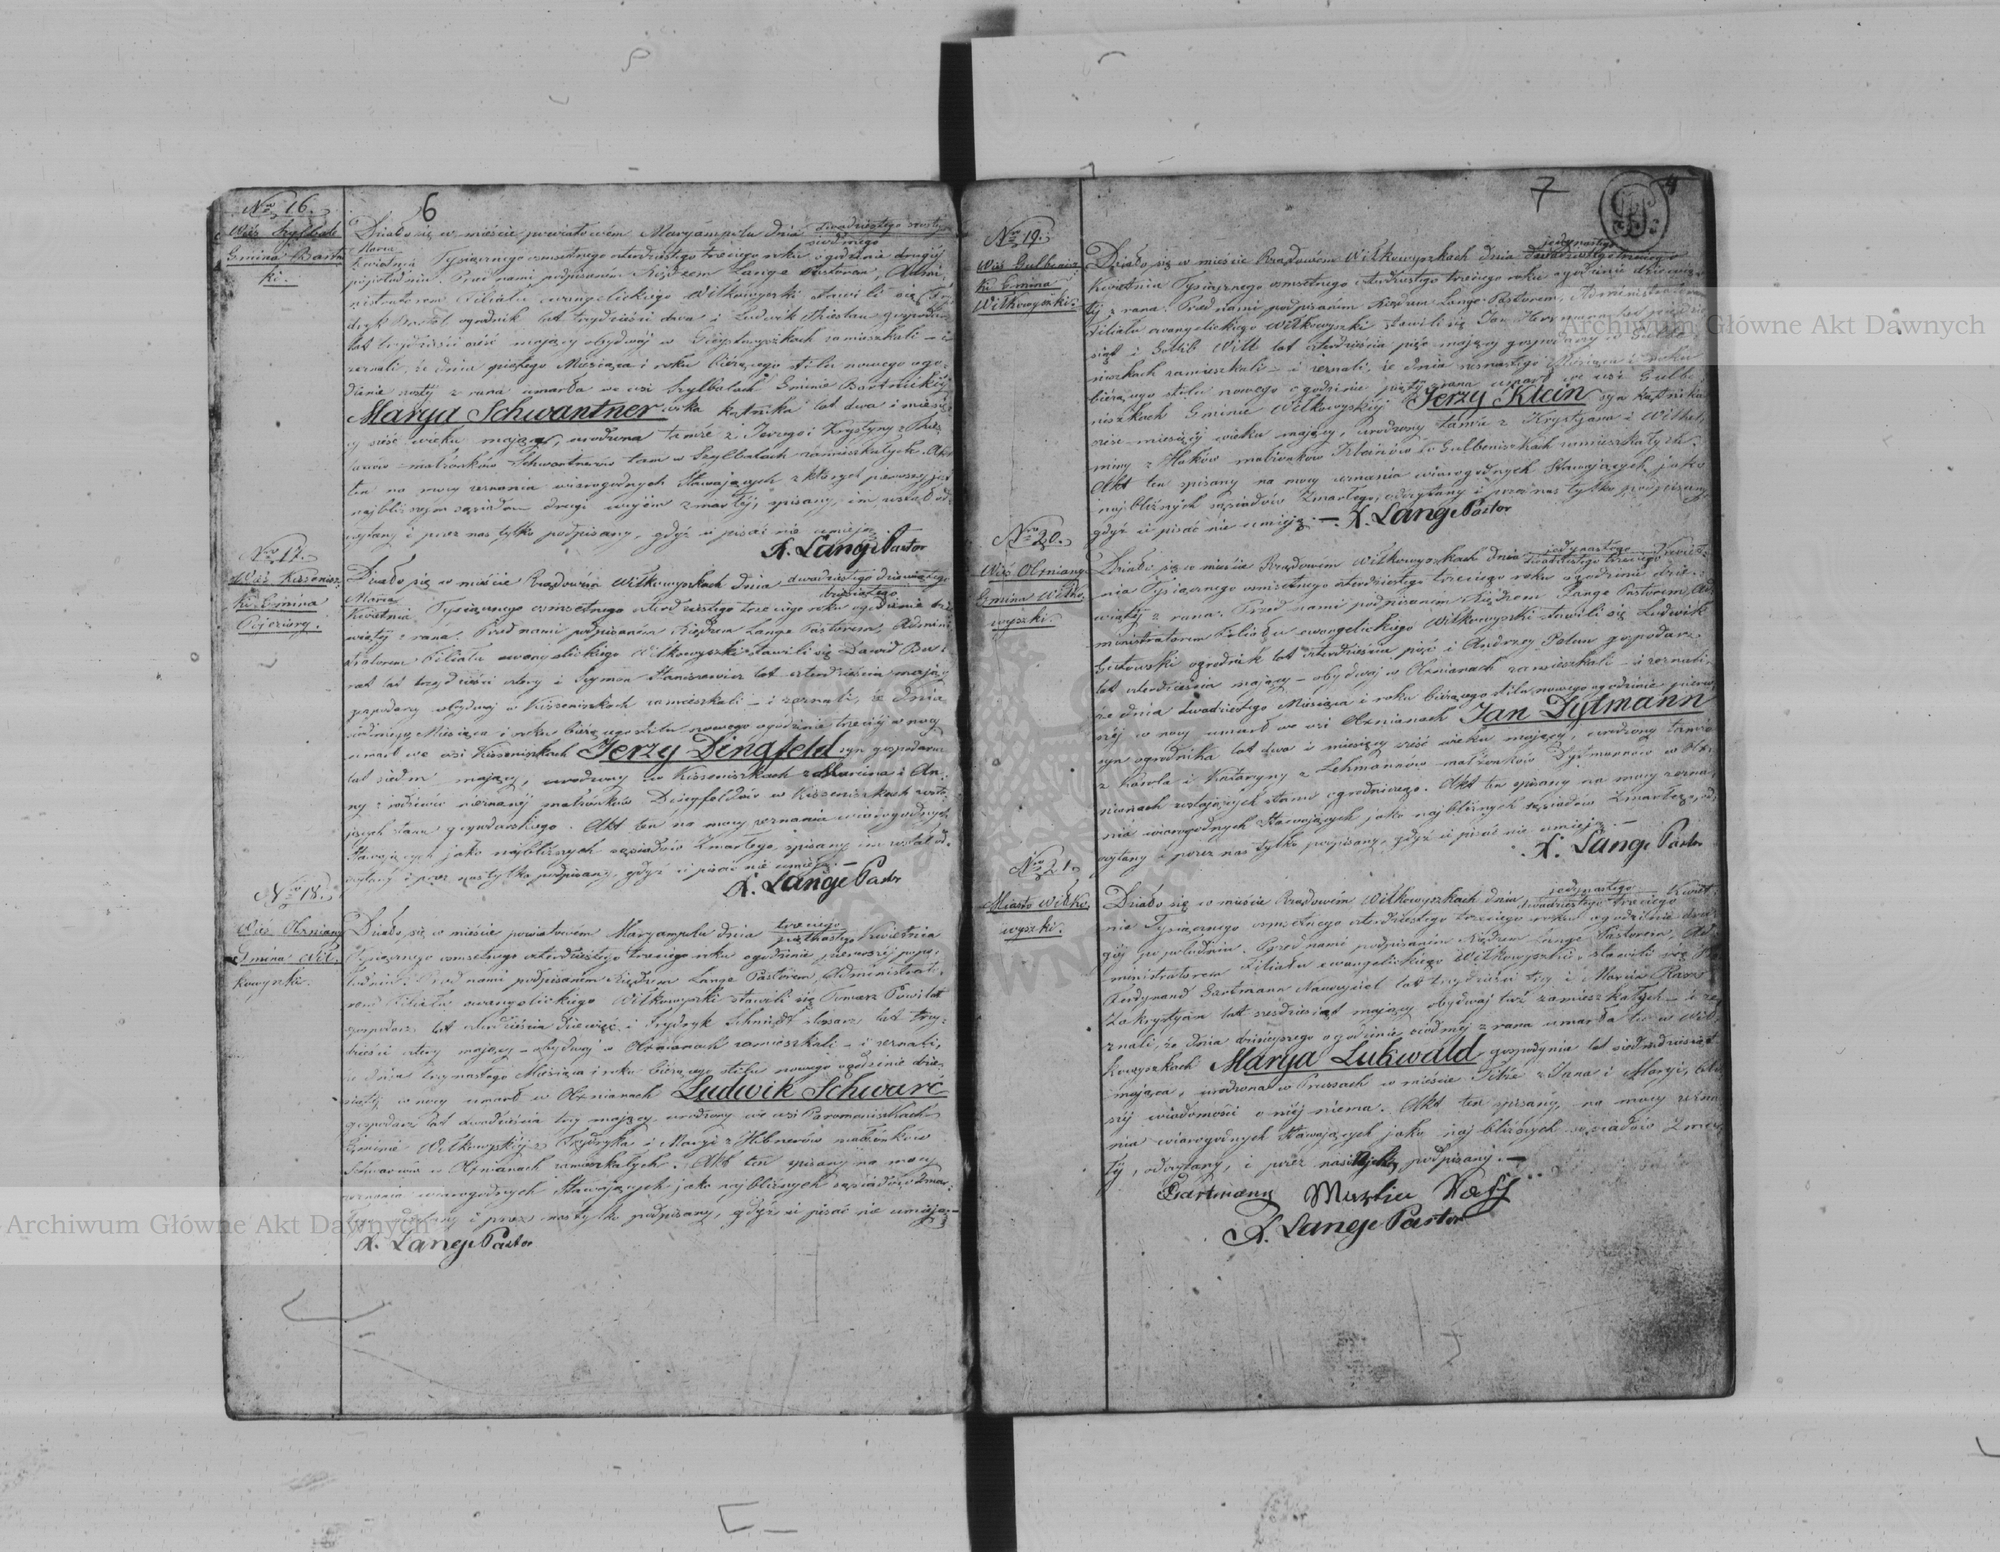 6
Nro 16.
Wieś Szylbale
Gmina Bartni
ki.
Działo się w mieście powiatowém Maryampolu dnia dwudziestego
siódmego
Marca
Kwietnia Tysiącznego ośmsetnego czterdziestego trzeciego roku o godzinie drugiéj
popołudniu. Przed nami podpisaném Xiędzem Lange Pastorem, Admi-
nistratorem Filiału ewangelickiego Wiłkowyszki stawili się
Bartel ogrodnik lat trzydzieści dwa i Ludwik gospodarz
lat trzydzieści sześć mający obydwaj w zamieszkali – i
zeznali, że dnia piątego Miesiąca i roku bieżącego stilu nowego o go-
dzinie szóstéj z rana umarła we wsi Szylbalach Gminie Bartnickiéj
Marya Schwantner córka kątnika lat dwa i miesię-
cy sześć wieku mająca, urodzona tamże z Jerzego i Krystyny z
małżonków Schwantnerów tam w Szylbalach zamieszkałych. Akt
ten na mocy zeznania wiarogodnych Stawających z których pierwszy jest
najbliższym sąsiadem drugi wujem zmarłéj, spisany, im został od-
czytany i przez nas tylko podpisany, gdyż ci pisać nie umieją.
X. Lange Pastor
Nro 17.
Wieś Kissenisz-
ki Gmina
Pojeziory.
Działo się w mieście Rządowém Wiłkowyszkach dnia dwudziestego dziewiątego
Marca
Kwietnia Tysiącznego ośmsetnego czterdziestego trzeciego roku o godzinie dzie-
wiątéj z rana. Przed nami podpisaném Xiędzem Lange Pastorem, Admini-
stratorem Filiału ewangelickiego Wiłkowyszki stawili się Dawid
lat trzydzieści cztery i Szymon Staniszewicz lat czterdzieścia mający
gospodarzy obydwaj w Kisseniszkach zamieszkali – i zeznali, że dnia
siódmego Miesiąca i roku bieżącego stilu nowego o godzinie trzeciéj w nocy
umarł we wsi Kisseniszkach Jerzy Dingfeld syn gospodarza
lat siedm mający, urodzony w Kisseniszkach z Marcina i An-
ny z rodziców nieznanéj małżonków Dingfeldów w Kisseniszkach zosta-
jących stanu gospodarskiego. Akt ten na mocy zeznania wiarogodnych
Stawających jako najbliższych sąsiadów Zmarłego, spisany im został od-
czytany i przez nas tylko podpisany, gdyż ci pisać nie umieją. –
X. Lange Pastor
Nro 18.
Wieś Olxniany
Gmina Wił-
kowyszki.
Działo się w mieście powiatowém Maryampolu dnia trzeciego
piętnastego Kwietnia
Tysiącznego ośmsetnego czterdziestego trzeciego roku o godzinie pierwszéj popo-
łudniu. Przed nami podpisaném Xiędzem Lange Pastorem, Administrato-
rem Filiału ewangelickiego Wiłkowyszki stawili się Tomasz
gospodarz lat czterdzieścia dziewięć i Frydryk Schmidt ślósarz lat trzy-
dzieści cztery mający – obydwaj w Olxnianach zamieszkali – i zeznali,
że dnia trzynastego Miesiąca i roku bieżącego stilu nowego o godzinie dzie-
siątéj w nocy umarł w Olxnianach Ludwik Schwarc
gospodarz lat dwadzieścia trzy mający urodzony we wsi Paromoniszkach
Gminie Wiłkowyskiéj z Frydryka i Maryi z Hibnerów małżonków
Schwarców w Olxnianach zamieszkałych. Akt ten spisany na mocy
zeznania wiarogodnych Stawających jako najbliższych sąsiadów Zmar-
łego, odczytany i przez nas tylko podpisany, gdyż ci pisać nie umieją. –
X. Lange Pastor
7
4
Nro 19.
Wieś Gulbenisz
ki Gmina
Wiłkowyszki.
jedynastego
Działo się w mieście Rządowém Wiłkowyszkach dnia dwudziestego trzeciego
Kwietnia Tysiącznego ośmsetnego czterdziestego trzeciego roku o godzinie dziewią-
téj z rana. Przed nami podpisaném Xiędzem Lange Pastorem, Administratorem
Filiału ewangelickiego Wiłkowyszki stawili się Jan Herrmann lat
siąt i Gotlib Will lat czterdzieścia pięć mający gospodarzy w Gulbe-
niszkach zamieszkali – i zeznali, że dnia Miesiąca i roku
bieżącego stilu nowego o godzinie piątéj z rana umarł we wsi Gulbe-
niszkach Gminie Wiłkowyskiéj Jerzy Klein syn kątnika
sześć miesięcy wieku mający, urodzony tamże z Krystyana i Wilhel-
miny z Haków małżonków Kleinów w Gulbeniszkach zamieszkałych.
Akt ten spisany na mocy zeznania wiarogodnych Stawających jako
najbliżnych sąsiadów Zmarłego, odczytany i przez nas tylko podpisany
gdyż ci pisać nie umieją. – X. Lange Pastor
Nro 20.
Wieś Olxniany
Gmina Wiłko-
wyszki.
jedynastego
Działo się w mieście Rządowém Wiłkowyszkach dnia dwudziestego trzeciego Kwiet-
nia Tysiącznego ośmsetnego czterdziestego trzeciego roku o godzinie dzie-
wiątéj z rana. Przed nami podpisaném Xiędzem Lange Pastorem, Ad-
ministratorem Filiału ewangelickiego Wiłkowyszki stawili się Ludwik
ogrodnik lat czterdzieścia pięć i Andrzey gospodarz
lat czterdzieścia mający – obydwaj w Olxnianach zamieszkali – i zeznali,
że dnia dwudziestego Miesiąca i roku bieżącego stilu nowego o godzinie pierw-
széj w nocy umarł we wsi Olxnianach Jan Dytmann
syn ogrodnika lat dwa i miesięcy sześć wieku mający, urodzony tamże
z Karola i Katarzyny z Lehmanów małżonków Dytmanów w Olx-
nianach zostających stanu ogrodniczego. Akt ten spisany na mocy zezna-
nia wiarogodnych Stawających jako najbliżnych sąsiadów Zmarłego, od-
czytany i przez nas tylko podpisany, gdyż ci pisać nie umieją. –
X. Lange Pastor
Nro 21.
Miasto Wiłko-
wyszki.
jedynastego
Działo się w mieście Rządowém Wiłkowyszkach dnia dwudziestego trzeciego Kwiet-
nia Tysiącznego ośmsetnego czterdziestego trzeciego roku o godzinie dru-
giéj po południu. Przed nami podpisaném Xiędzem Lange Pastorem, Ad-
ministratorem Filiału ewangelickiego Wiłkowyszki, stawili się
Ferdynand Gartmann Nauczyciel lat trzydzieści trzy i Marcin
Zakrystyan lat sześdziesiąt mający obydwaj tu zamieszkałych – i ze-
znali, że dnia dzisiejszego o godzinie siódméj z rana umarła tu w Wił-
kowyszkach Marya Lukwald gospodynia lat siedmdziesiąt
mająca, urodzona w Prussach w mieście Tilżé z Jana i Maryi, bliż-
széj wiadomości o niéj niema. Akt ten spisany na mocy zezna-
nia wiarogodnych Stawających jako najbliżnych sąsiadów Zmar-
łéj, odczytany, i przez nas podpisany. –
Gartmann Martin Rass
X. Lange Pastor
Archiwum Główne Akt Dawnych
Archiwum Główne Akt Dawnych